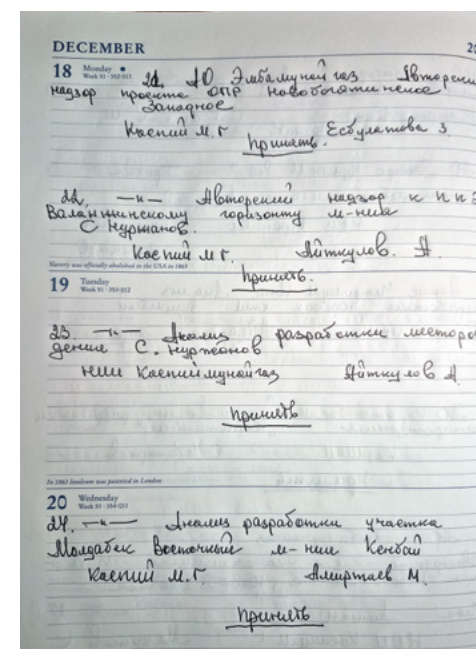 DECEMBER
18 Monday
Week 51 · 352-013
21. АО Эмбамунайгаз Авторский
надзор проекта ОПР Новобогатинское
Западное
Каспий М.Г Есбулатова З.
Принять.
22. —"— Авторский надзор к ППЭ
Валанжинскому горизонту м-ния
С Нуржанов.
Каспий М Г. Айткулов. А.
Slavery was officially abolished in the USA in 1865
Принять.
19 Tuesday
Week 51 · 353-012
23. —"— Анализ разработки месторо
дения С. Нуржанов
НИИ Каспиймунайгаз Айткулов А.
Принять
In 1863 linoleum was patented in London
20 Wednesday
Week 51 · 354-011
24. —"— Анализ разработки участка
Молдабек Восточный м-нии Кенбай
Каспий М.Г. Амиртаев М.
Принять